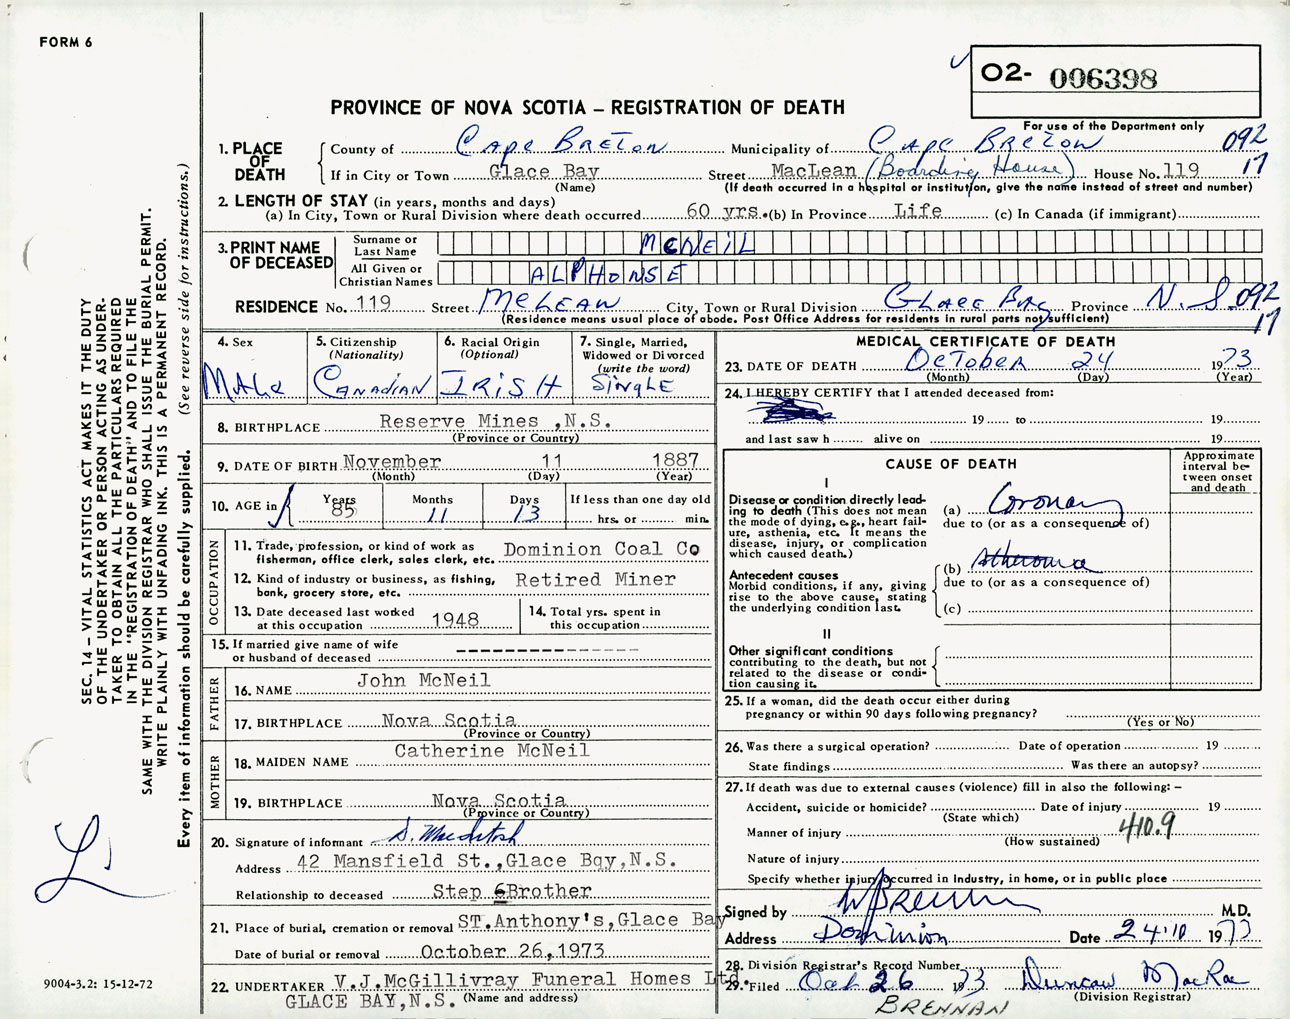 FORM 6
O2- 006398
PROVINCE OF NOVA SCOTIA – REGISTRATION OF DEATH
For use of the Department only
1. PLACE OF DEATH
County of Cape Breton Municipality of Cape Breton 092
If in City or Town Glace Bay Street MacLean (Boarding House) House No. 119 17
(Name) (If death occurred in a hospital or institution, give the name instead of street and number)
2. LENGTH OF STAY (in years, months and days)
(a) In City, Town or Rural Division where death occurred 60 yrs. (b) In Province Life (c) In Canada (if immigrant)
3. PRINT NAME OF DECEASED
Surname or Last Name McNEiL
All Given or Christian Names ALPHONSE
RESIDENCE No. 119 Street McLean City, Town or Rural Division Glace Bay Province N.S. 092
17
(Residence means usual place of abode. Post Office Address for residents in rural parts not sufficient)
4. Sex
Male
5. Citizenship
(Nationality)
Canadian
6. Racial Origin
(Optional)
IRISH
7. Single, Married,
Widowed or Divorced
(write the word)
SiNgLE
8. BIRTHPLACE Reserve Mines ,N.S.
(Province or Country)
9. DATE OF BIRTH November 11 1887
(Month) (Day) (Year)
10. AGE in Years 85 Months 11 Days 13 If less than one day old
hrs. or min.
OCCUPATION
11. Trade, profession, or kind of work as
fisherman, office clerk, sales clerk, etc. Dominion Coal Co
12. Kind of industry or business, as fishing,
bank, grocery store, etc. Retired Miner
13. Date deceased last worked
at this occupation 1948
14. Total yrs. spent in
this occupation
15. If married give name of wife
or husband of deceased
FATHER
16. NAME John McNeil
17. BIRTHPLACE Nova Scotia
(Province or Country)
MOTHER
18. MAIDEN NAME Catherine McNeil
19. BIRTHPLACE Nova Scotia
(Province or Country)
20. Signature of informant S. MacIntosh
Address 42 Mansfield St.,Glace Bqy,N.S.
Relationship to deceased Step Brother
21. Place of burial, cremation or removal ST.Anthony's,Glace Bay
Date of burial or removal October 26,1973
22. UNDERTAKER V.J.McGillivray Funeral Homes Ltd.
GLACE BAY,N.S. (Name and address)
MEDICAL CERTIFICATE OF DEATH
23. DATE OF DEATH October 24 1973
(Month) (Day) (Year)
24. I HEREBY CERTIFY that I attended deceased from:
19 to 19
and last saw h alive on 19
CAUSE OF DEATH
Approximate
interval be-
tween onset
and death
I
Disease or condition directly lead-
ing to death (This does not mean
the mode of dying, e.g., heart fail-
ure, asthenia, etc. It means the
disease, injury, or complication
which caused death.)
(a) Coronary
due to (or as a consequence of)
Antecedent causes
Morbid conditions, if any, giving
rise to the above cause, stating
the underlying condition last.
(b) Atheroma
due to (or as a consequence of)
(c)
II
Other significant conditions
contributing to the death, but not
related to the disease or condi-
tion causing it.
25. If a woman, did the death occur either during
pregnancy or within 90 days following pregnancy?
(Yes or No)
26. Was there a surgical operation? Date of operation 19
State findings Was there an autopsy?
27. If death was due to external causes (violence) fill in also the following: –
Accident, suicide or homicide? Date of injury 19
(State which)
Manner of injury 410.9
(How sustained)
Nature of injury
Specify whether injury occurred in industry, in home, or in public place
Signed by W Brennan M.D.
Address Dominion Date 24.10 1973
28. Division Registrar's Record Number
29. Filed Oct 26 1973 Duncan MacRae
(Division Registrar)
BRENNAN
SEC. 14 – VITAL STATISTICS ACT MAKES IT THE DUTY
OF THE UNDERTAKER OR PERSON ACTING AS UNDER-
TAKER TO OBTAIN ALL THE PARTICULARS REQUIRED
IN THE "REGISTRATION OF DEATH" AND TO FILE THE
SAME WITH THE DIVISION REGISTRAR WHO SHALL ISSUE THE BURIAL PERMIT.
WRITE PLAINLY WITH UNFADING INK. THIS IS A PERMANENT RECORD.
Every item of information should be carefully supplied. (See reverse side for instructions.)
9004-3.2: 15-12-72